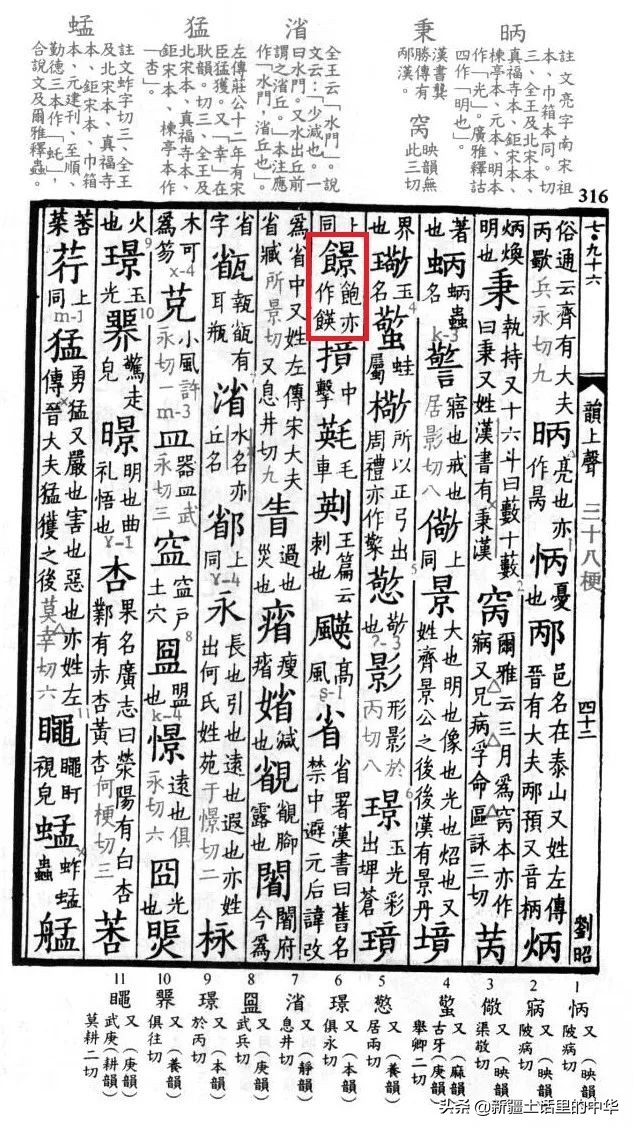 昞
註文亮字南宋祖
本、巾箱本同。切
三、全王及北宋本、
真福寺本、鉅宋本、
楝亭本、元本、明本
作「光」。廣雅釋詁
四作「明也」。
秉
漢書龔
勝傳有
邴漢。
窉 映韻無
此三切
渻
全王云「水門」。說
文云:「少減也。一
曰水門。又水出丘前
謂之渻丘。」本注應
作「水門,渻丘也」。
猛
左傳莊公十二年有宋
臣猛獲。又「幸」在
耿韻。切三、全王及
北宋本、真福寺本、
鉅宋本、楝亭本作
「杏」。
蜢
註文蚱字切三、全王
及北宋本、真福寺
本、鉅宋本、巾箱
本、元建刊、至順、
勤德三本作「虴」,
合說文及爾雅釋蟲。
316
七·九十六
韻上聲 三十八梗 四十二 劉昭
俗通云齊有大夫丙歜兵永切九 昞亮也亦作昺 怲憂也 邴邑名在泰山又姓左傳晉有大夫邴預又音柄 炳
炳煥明也 秉執持又十六斗曰藪十藪曰秉又姓漢書有秉漢 窉爾雅云三月為窉本亦作寎又兄病孚命區詠三切 苪
著也 蛃蛃蟲名 警寤也戒也居影切八 儆上同 景大也明也像也光也炤也又姓齊景公之後後漢有景丹 境
界也 璥玉名 蟼蛙屬 所以正弓出周禮亦作 憼敬也 影形影於丙切八 璟玉光彩出埤蒼 璄
上同 䭘飽亦作 中擊 毛車 王篇云刺也 高風 省省署漢書曰舊名禁中避元后諱改
為省中又姓左傳宋大夫省臧所景切又息井切九 眚過也災也 瘦 媘減也 露也 今為
省字 有耳瓶 渻水名亦丘名 上同 永長也引也遠也遐也亦姓出何氏姓苑于憬切二 栐
木可為笏 小風許永切一 皿器皿武永切三 土穴 盟也 憬遠也俱永切六 囧光也 臩
火也 璟玉光 臩驚走皃 暻明也曲礼悟也 杏果名廣志曰滎陽有白杏鄴有赤杏黃杏何梗切三 莕
菩菜 荇上同 猛勇猛又嚴也害也惡也亦姓左傳晉大夫猛獲之後莫幸切六 黽町視皃 蜢蚱蜢蟲 艋
1 怲 又(映韻)陂病切
2 寎 又(映韻)陂病切
3 儆 又(映韻)渠敬切
4 蟼 又(麻韻)古牙(庚韻)舉卿二切
5 憼 又(養韻)居兩切
6 璟 又(本韻)俱永切
7 渻 又(靜韻)息井切
8 又(庚韻)武兵切
9 璟 又(本韻)於丙切
10 臩 又(養韻)俱往切
11 又(庚韻)武庚(耕韻)莫耕二切
头条 @新疆土话里的中华